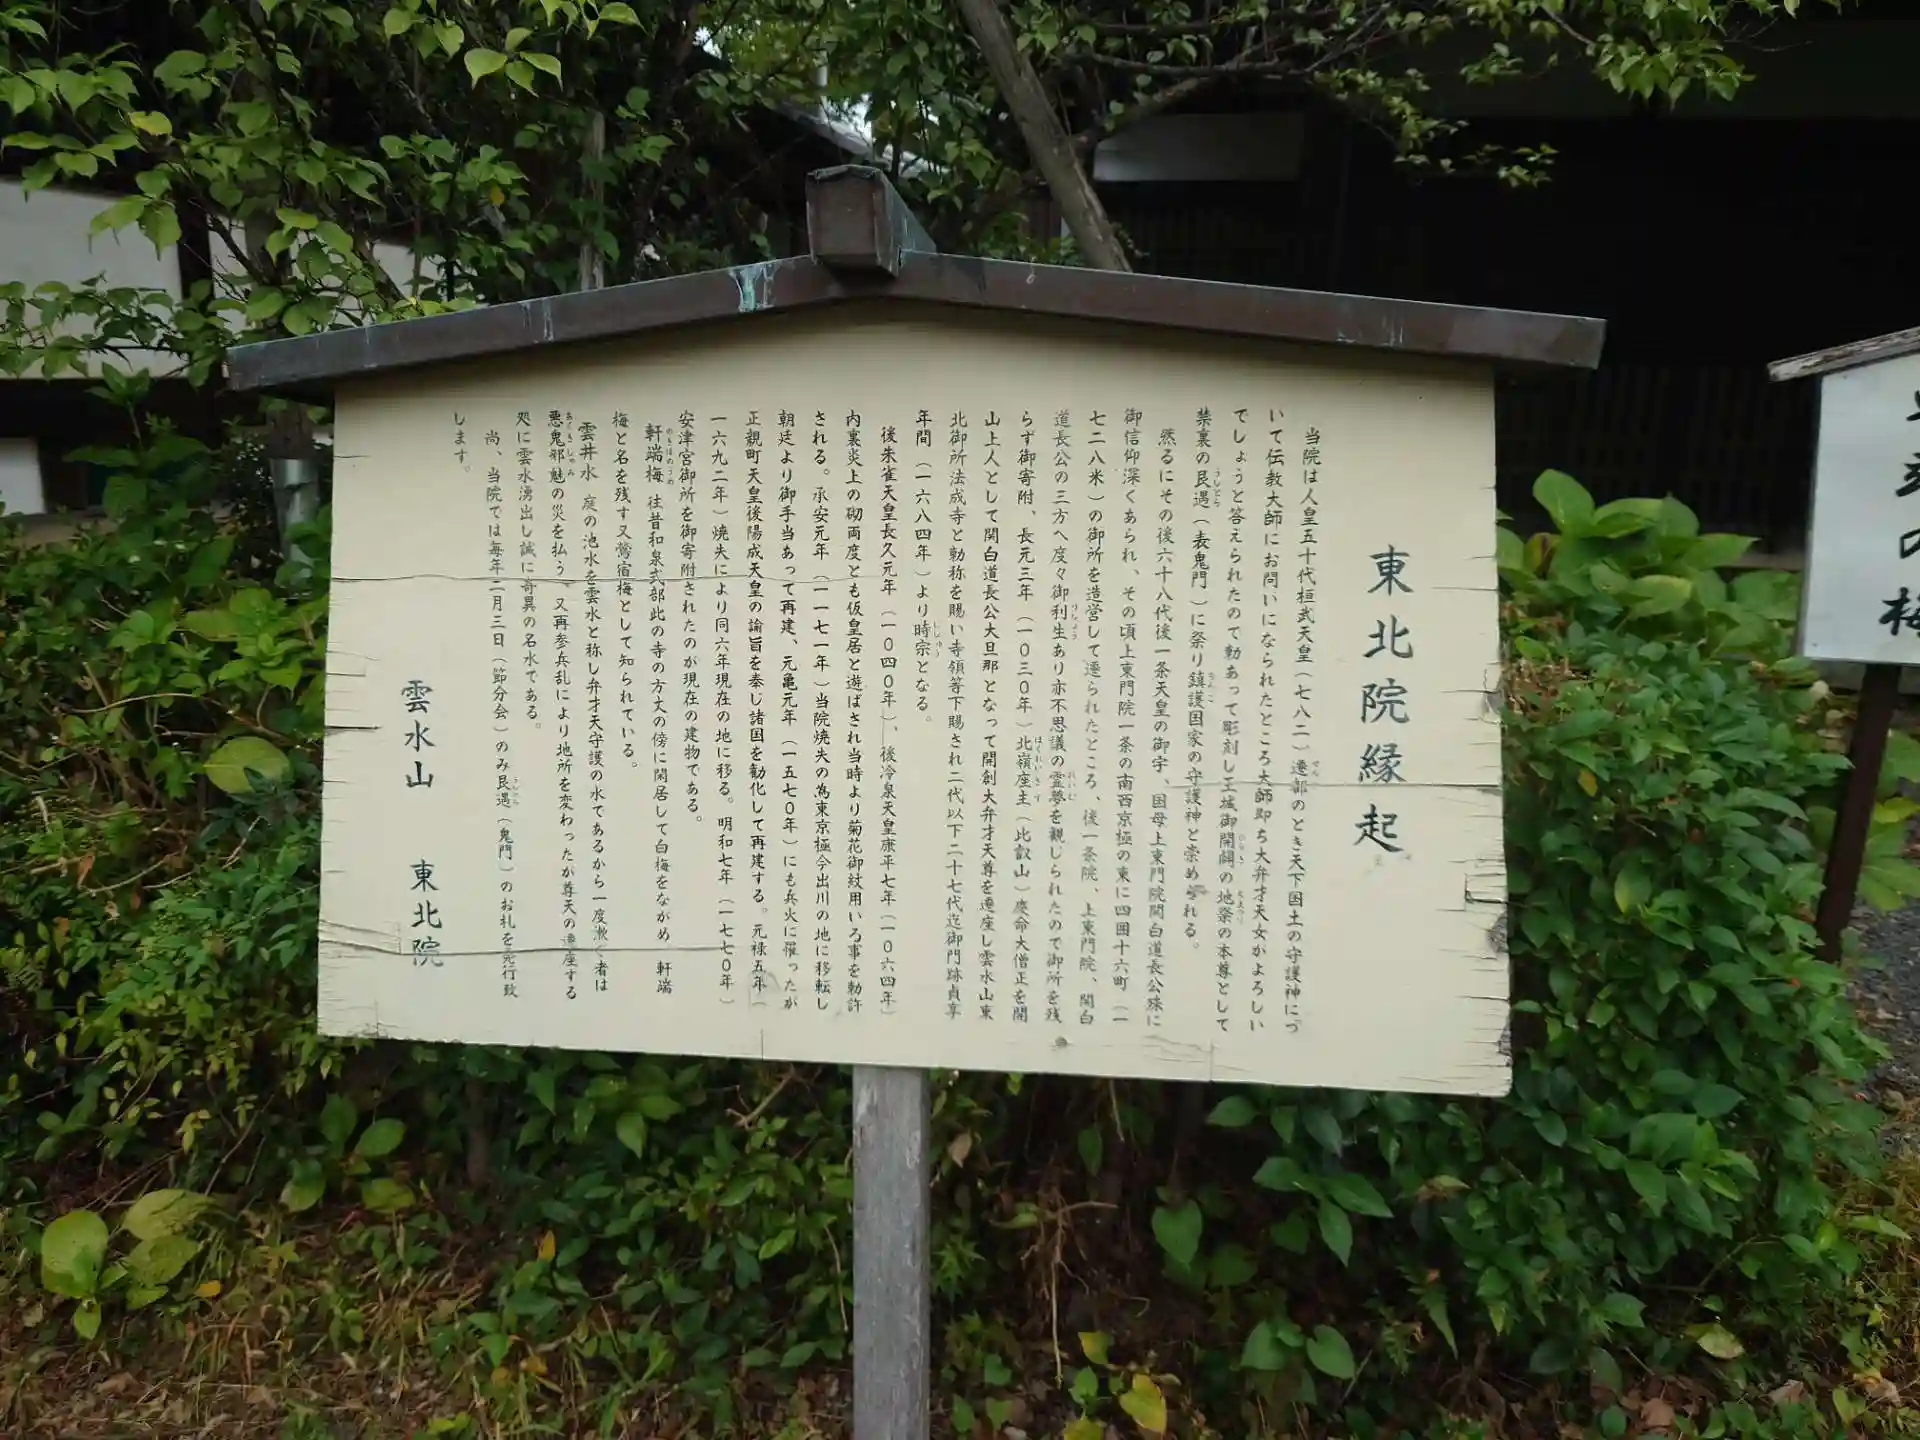 東北院縁起
当院は人皇五十代桓武天皇(七八二)遷都のとき天下国土の守護神につ
いて伝教大師にお問いになられたところ大師即ち大弁才天女がよろしい
でしょうと答えられたので勅あって彫刻し王城御開闢の地祭の本尊として
禁裏の艮遇(表鬼門)に祭り鎮護国家の守護神と崇められる。
然るにその後六十八代後一条天皇の御宇、国母上東門院関白道長公殊に
御信仰深くあられ、その頃上東門院一条の南西京極の東に四囲十六町(一
七二八米)の御所を造営して遷られたところ、後一条院、上東門院、関白
道長公の三方へ度々御利生あり亦不思議の霊夢を観じられたので御所を残
らず御寄附、長元三年(一〇三〇年)北嶺座主(比叡山)慶命大僧正を開
山上人として関白道長公大旦那となって開創大弁才天尊を遷座し雲水山東
北御所法成寺と勅称を賜い寺領等下賜され二代以下二十七代迄御門跡貞享
年間(一六八四年)より時宗となる。
後朱雀天皇長久元年(一〇四〇年)、後冷泉天皇康平七年(一〇六四年)
内裏炎上の砌両度とも仮皇居と遊ばされ当時より菊花御紋用いる事を勅許
される。承安元年(一一七一年)当院焼失の為東京極今出川の地に移転し
朝廷より御手当あって再建、元亀元年(一五七〇年)にも兵火に罹ったが
正親町天皇後陽成天皇の論旨を奉じ諸国を勧化して再建する。元禄五年(
一六九二年)焼失により同六年現在の地に移る。明和七年(一七七〇年)
安津宮御所を御寄附されたのが現在の建物である。
軒端梅 往昔和泉式部此の寺の方丈の傍に閑居して白梅をながめ 軒端
梅と名を残す又鶯宿梅として知られている。
雲井水 庭の池水を雲水と称し弁才天守護の水であるから一度漱ぐ者は
悪鬼邪魅の災を払う。又再参兵乱により地所を変わったが尊天の遷座する
処に雲水湧出し誠に奇異の名水である。
尚、当院では毎年二月三日(節分会)のみ艮遇(鬼門)のお札を発行致
します。
雲水山 東北院
の梅